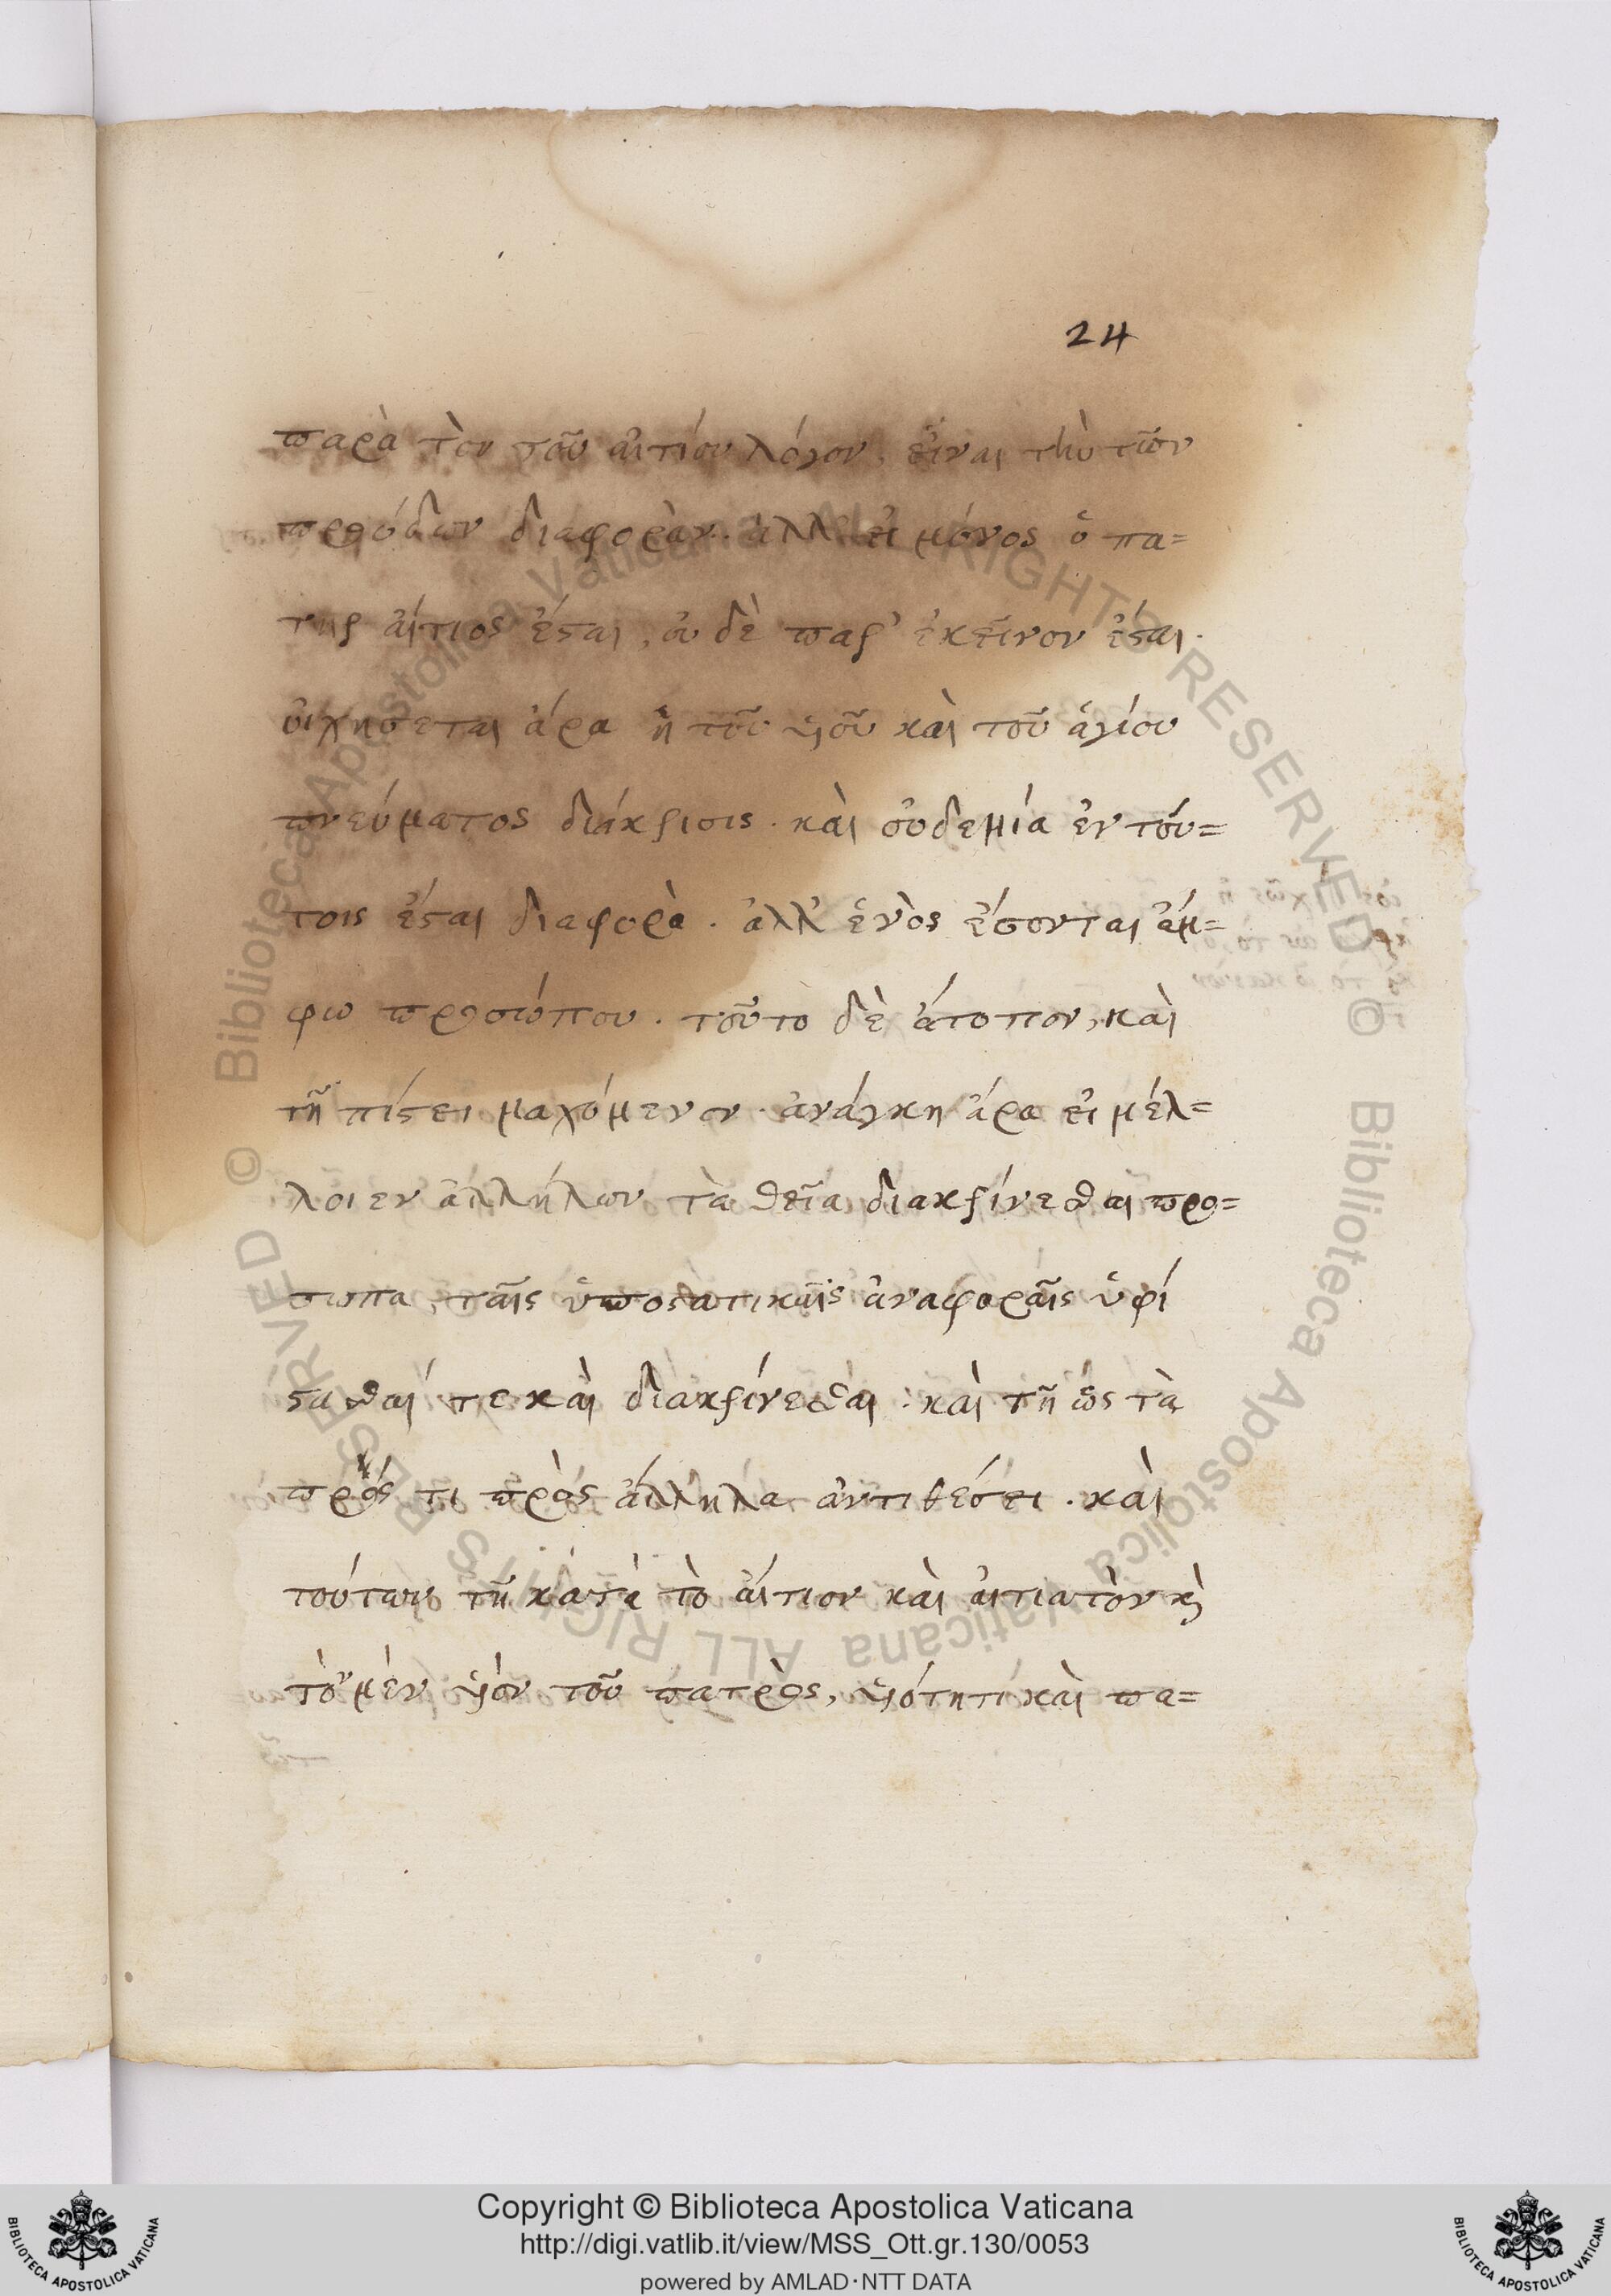 24
παρὰ τὸν τοῦ αἰτίου λόγον, εἶναι τὴν τῶν
προόδων διαφοράν. ἀλλ' εἰ μόνος ὁ πα=
τὴρ αἴτιος ἔσται, οὐδὲ παρ' ἐκεῖνον ἔσται.
οἰχήσεται ἄρα ἡ τοῦ υἱοῦ καὶ τοῦ ἁγίου
πνεύματος διάκρισις. καὶ οὐδεμία ἐν τού=
τοις ἔσται διαφορὰ. ἀλλ' ἑνὸς ἔσονται ἄμ=
φω προσώπου. τοῦτο δὲ ἄτοπον, καὶ
τῇ πίστει μαχόμενον. ἀνάγκη ἄρα εἰ μέλ=
λοιεν ἀλλήλων τὰ θεῖα διακρίνεσθαι πρό=
σωπα, ταῖς ὑποστατικαῖς ἀναφοραῖς ὑφί
στασθαί τε καὶ διακρίνεσθαι· καὶ τῇ ὡς τὰ
πρός τι πρὸς ἄλληλα ἀντιθέσει. καὶ
τούτων τῇ κατὰ τὸ αἴτιον καὶ αἰτιατὸν κὶ
τὸν μὲν υἱὸν τοῦ πατρὸς, υἱότητι καὶ πα=
Copyright © Biblioteca Apostolica Vaticana
http://digi.vatlib.it/view/MSS_Ott.gr.130/0053
powered by AMLAD·NTT DATA
BIBLIOTECA APOSTOLICA VATICANA
BIBLIOTECA APOSTOLICA VATICANA
© Biblioteca Apostolica Vaticana ALL RIGHTS RESERVED
© Biblioteca Apostolica Vaticana ALL RIGHTS RESERVED